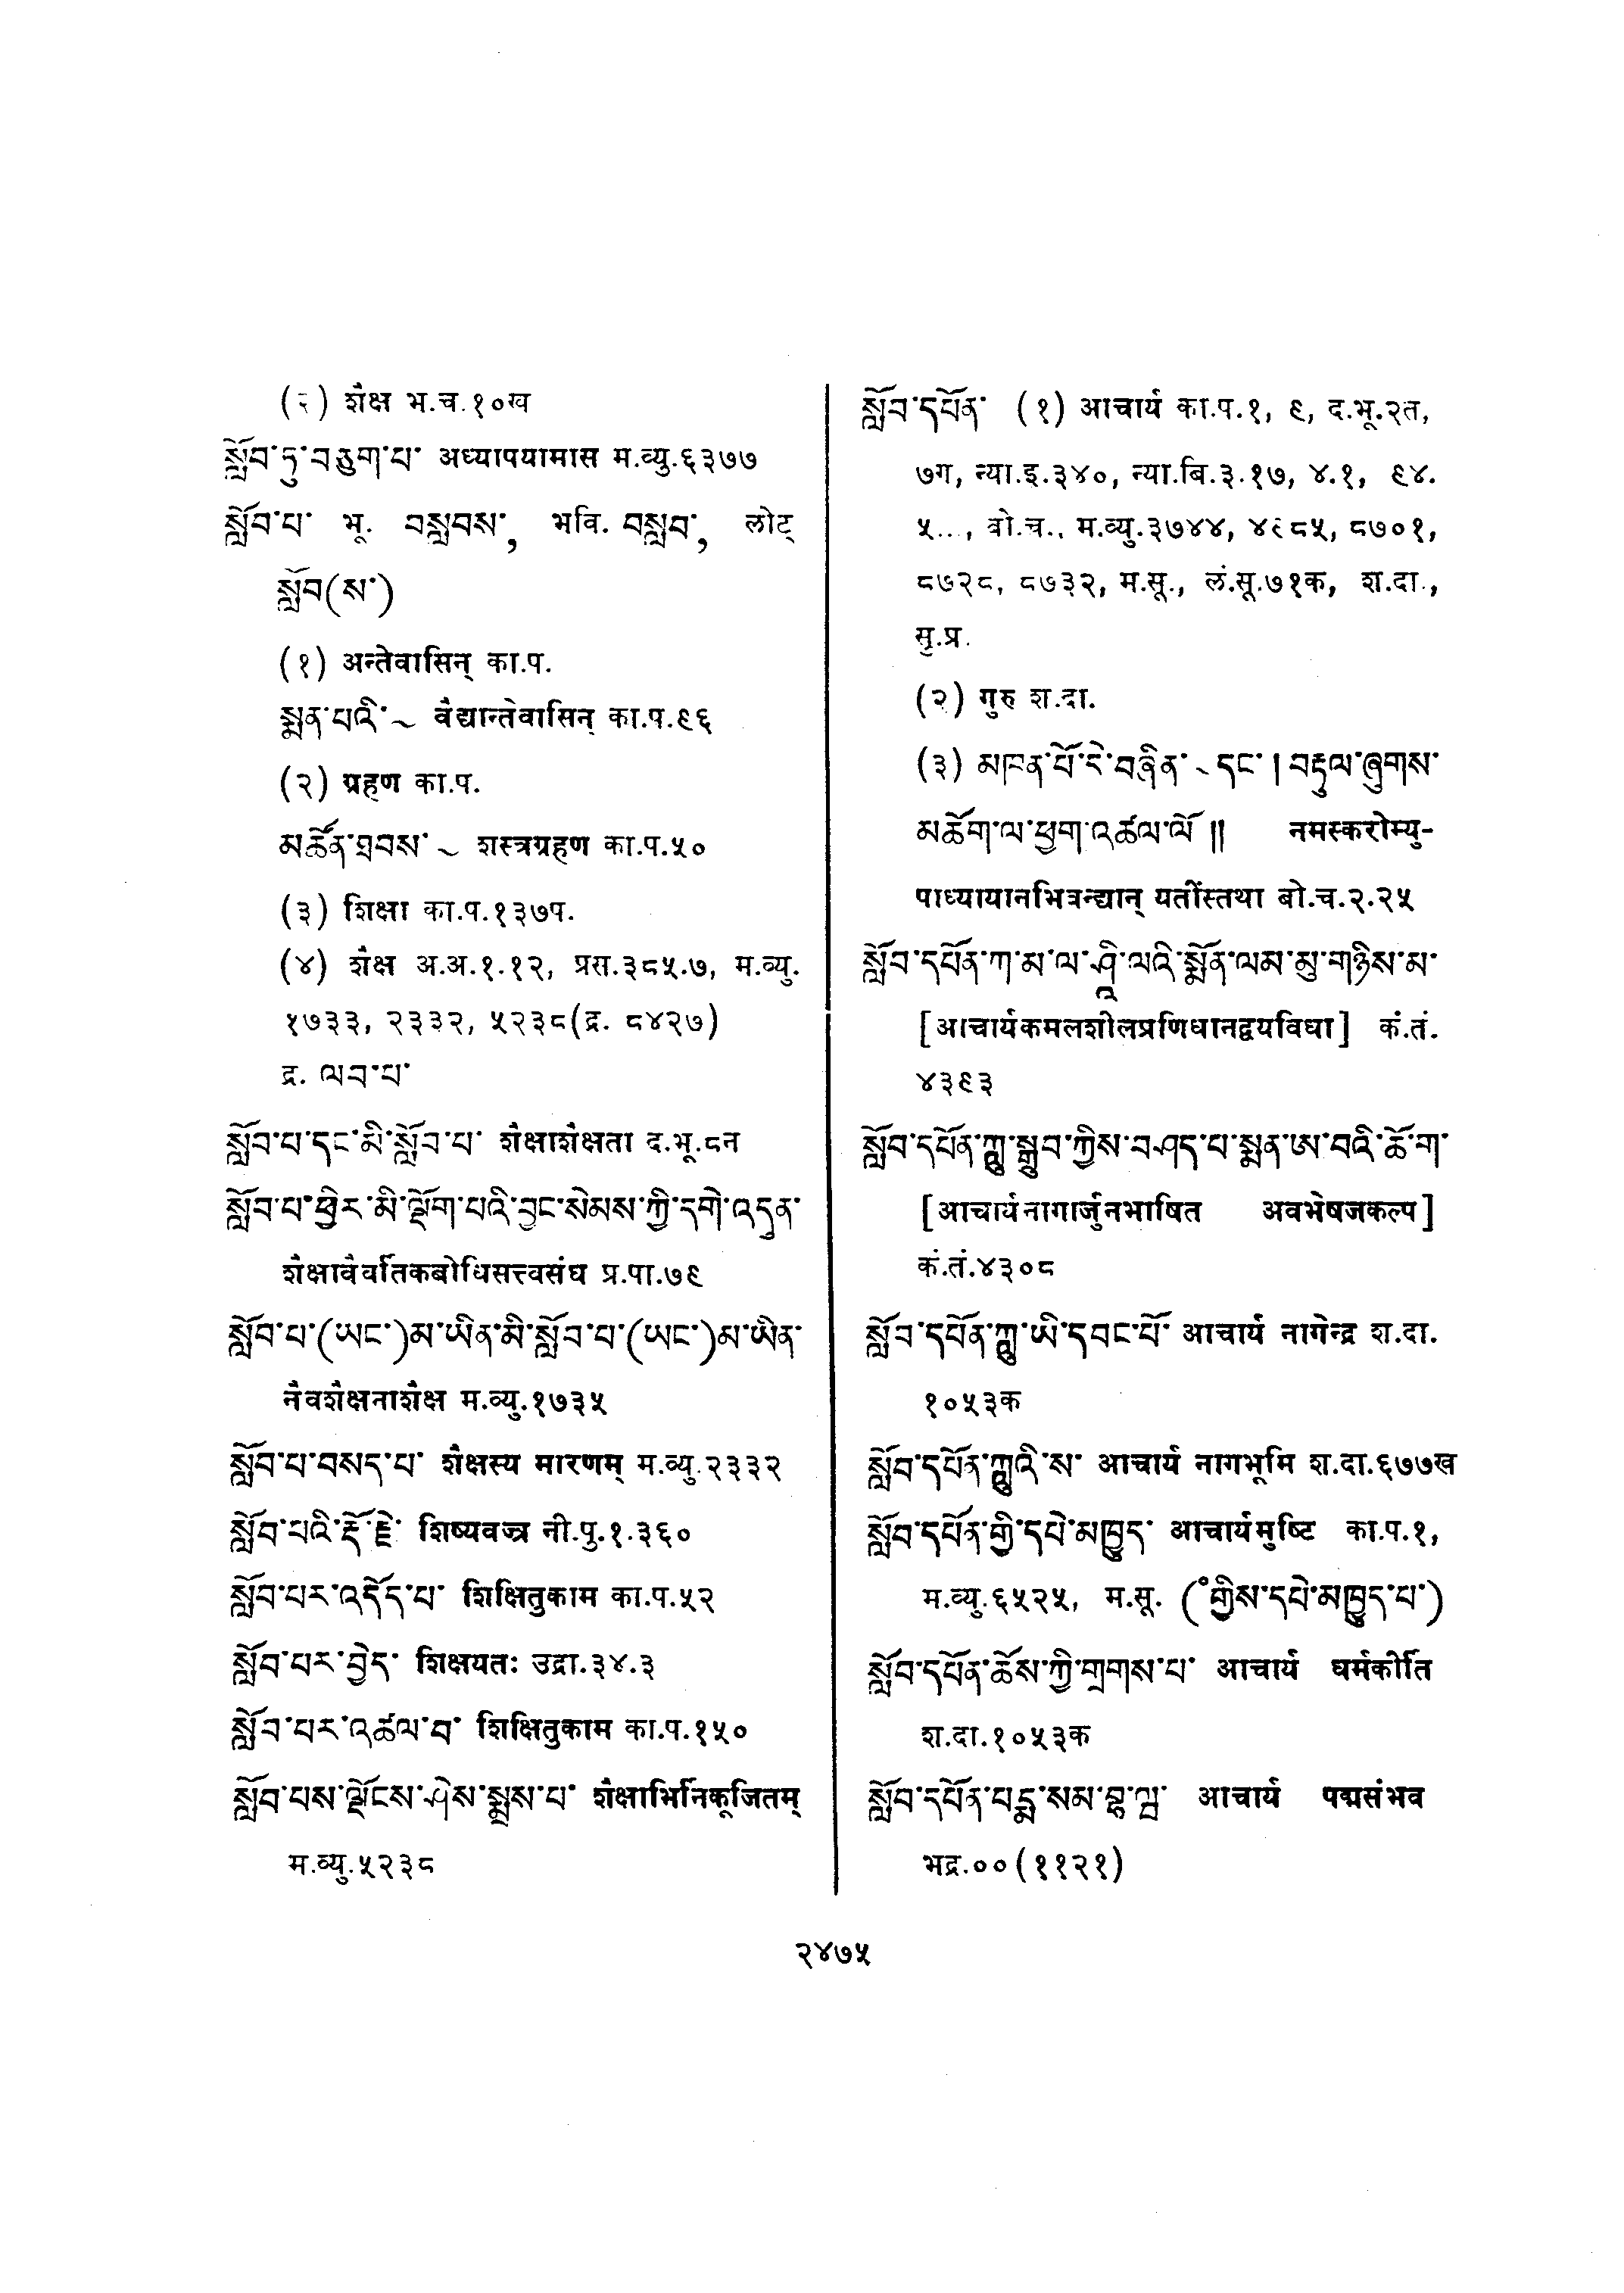 (२) शैक्ष भ.च.१०ख
སློབ་ཏུ་བཅུག་པ་ अध्यापयामास म.व्यु.६३७७
སློབ་པ་ भू. བསླབས་, भवि. བསླབ་, लोट्
སློབ(ས་)
(१) अन्तेवासिन् का.प.
སྨན་པའི་ ~ वैद्यान्तेवासिन् का.प.९६
(२) ग्रहण का.प.
མཚོན་ཐབས་ ~ शस्त्रग्रहण का.प.५०
(३) शिक्षा का.प.१३७प.
(४) शैक्ष अ.अ.१.१२, प्रस.३८५.७, म.व्यु.
१७३३, २३३२, ५२३८(द्र. ८४२७)
द्र. ལབ་པ་
སློབ་པ་དང་མི་སློབ་པ་ शैक्षाशैक्षता द.भू.८न
སློབ་པ་ཕྱིར་མི་ལྡོག་པའི་བྱང་སེམས་ཀྱི་དགེ་འདུན་
शैक्षावैवर्तिकबोधिसत्त्वसंघ प्र.पा.७९
སློབ་པ་(ཡང་)མ་ཡིན་མི་སློབ་པ་(ཡང་)མ་ཡིན་
नैवशैक्षनाशैक्ष म.व्यु.१७३५
སློབ་པ་བསད་པ་ शैक्षस्य मारणम् म.व्यु.२३३२
སློབ་པའི་རྡོ་རྗེ་ शिष्यवज्र नी.पु.१.३६०
སློབ་པར་འདོད་པ་ शिक्षितुकाम का.प.५२
སློབ་པར་བྱེད་ शिक्षयतः उद्रा.३४.३
སློབ་པར་འཚལ་བ་ शिक्षितुकाम का.प.१५०
སློབ་པས་ལྡོངས་ཤེས་སྨྲས་པ་ शैक्षाभिनिकूजितम्
म.व्यु.५२३८
སློབ་དཔོན་ (१) आचार्य का.प.१, ९, द.भू.२त,
७ग, न्या.इ.३४०, न्या.बि.३.१७, ४.१, ९४.
५..., बो.च., म.व्यु.३७४४, ४९८५, ८७०१,
८७२८, ८७३२, म.सू., लं.सू.७१क, श.दा.,
सु.प्र.
(२) गुरु श.दा.
(३) མཁན་པོ་དེ་བཞིན་ ~ དང་། བརྟུལ་ཞུགས་
མཆོག་ལ་ཕྱག་འཚལ་ལོ།། नमस्करोम्यु-
पाध्यायानभिवन्द्यान् यतींस्तथा बो.च.२.२५
སློབ་དཔོན་ཀ་མ་ལ་ཤཱི་ལའི་སྨོན་ལམ་མུ་གཉིས་མ་
[आचार्यकमलशीलप्रणिधानद्वयविधा] कं.तं.
४३९३
སློབ་དཔོན་ཀླུ་སྒྲུབ་ཀྱིས་བཤད་པ་སྨན་ཨ་བའི་ཆོ་ག་
[आचार्यनागार्जुनभाषित अवभेषजकल्प]
कं.तं.४३०८
སློབ་དཔོན་ཀླུ་ཡི་དབང་པོ་ आचार्य नागेन्द्र श.दा.
१०५३क
སློབ་དཔོན་ཀླུའི་ས་ आचार्य नागभूमि श.दा.६७७ख
སློབ་དཔོན་གྱི་དཔེ་མཁྱུད་ आचार्यमुष्टि का.प.१,
म.व्यु.६५२५, म.सू. (°གྱིས་དཔེ་མཁྱུད་པ་)
སློབ་དཔོན་ཆོས་ཀྱི་གྲགས་པ་ आचार्य धर्मकीर्ति
श.दा.१०५३क
སློབ་དཔོན་པདྨ་སམ་བྷ་ཝ་ आचार्य पद्मसंभव
भद्र.००(११२१)
२४७५